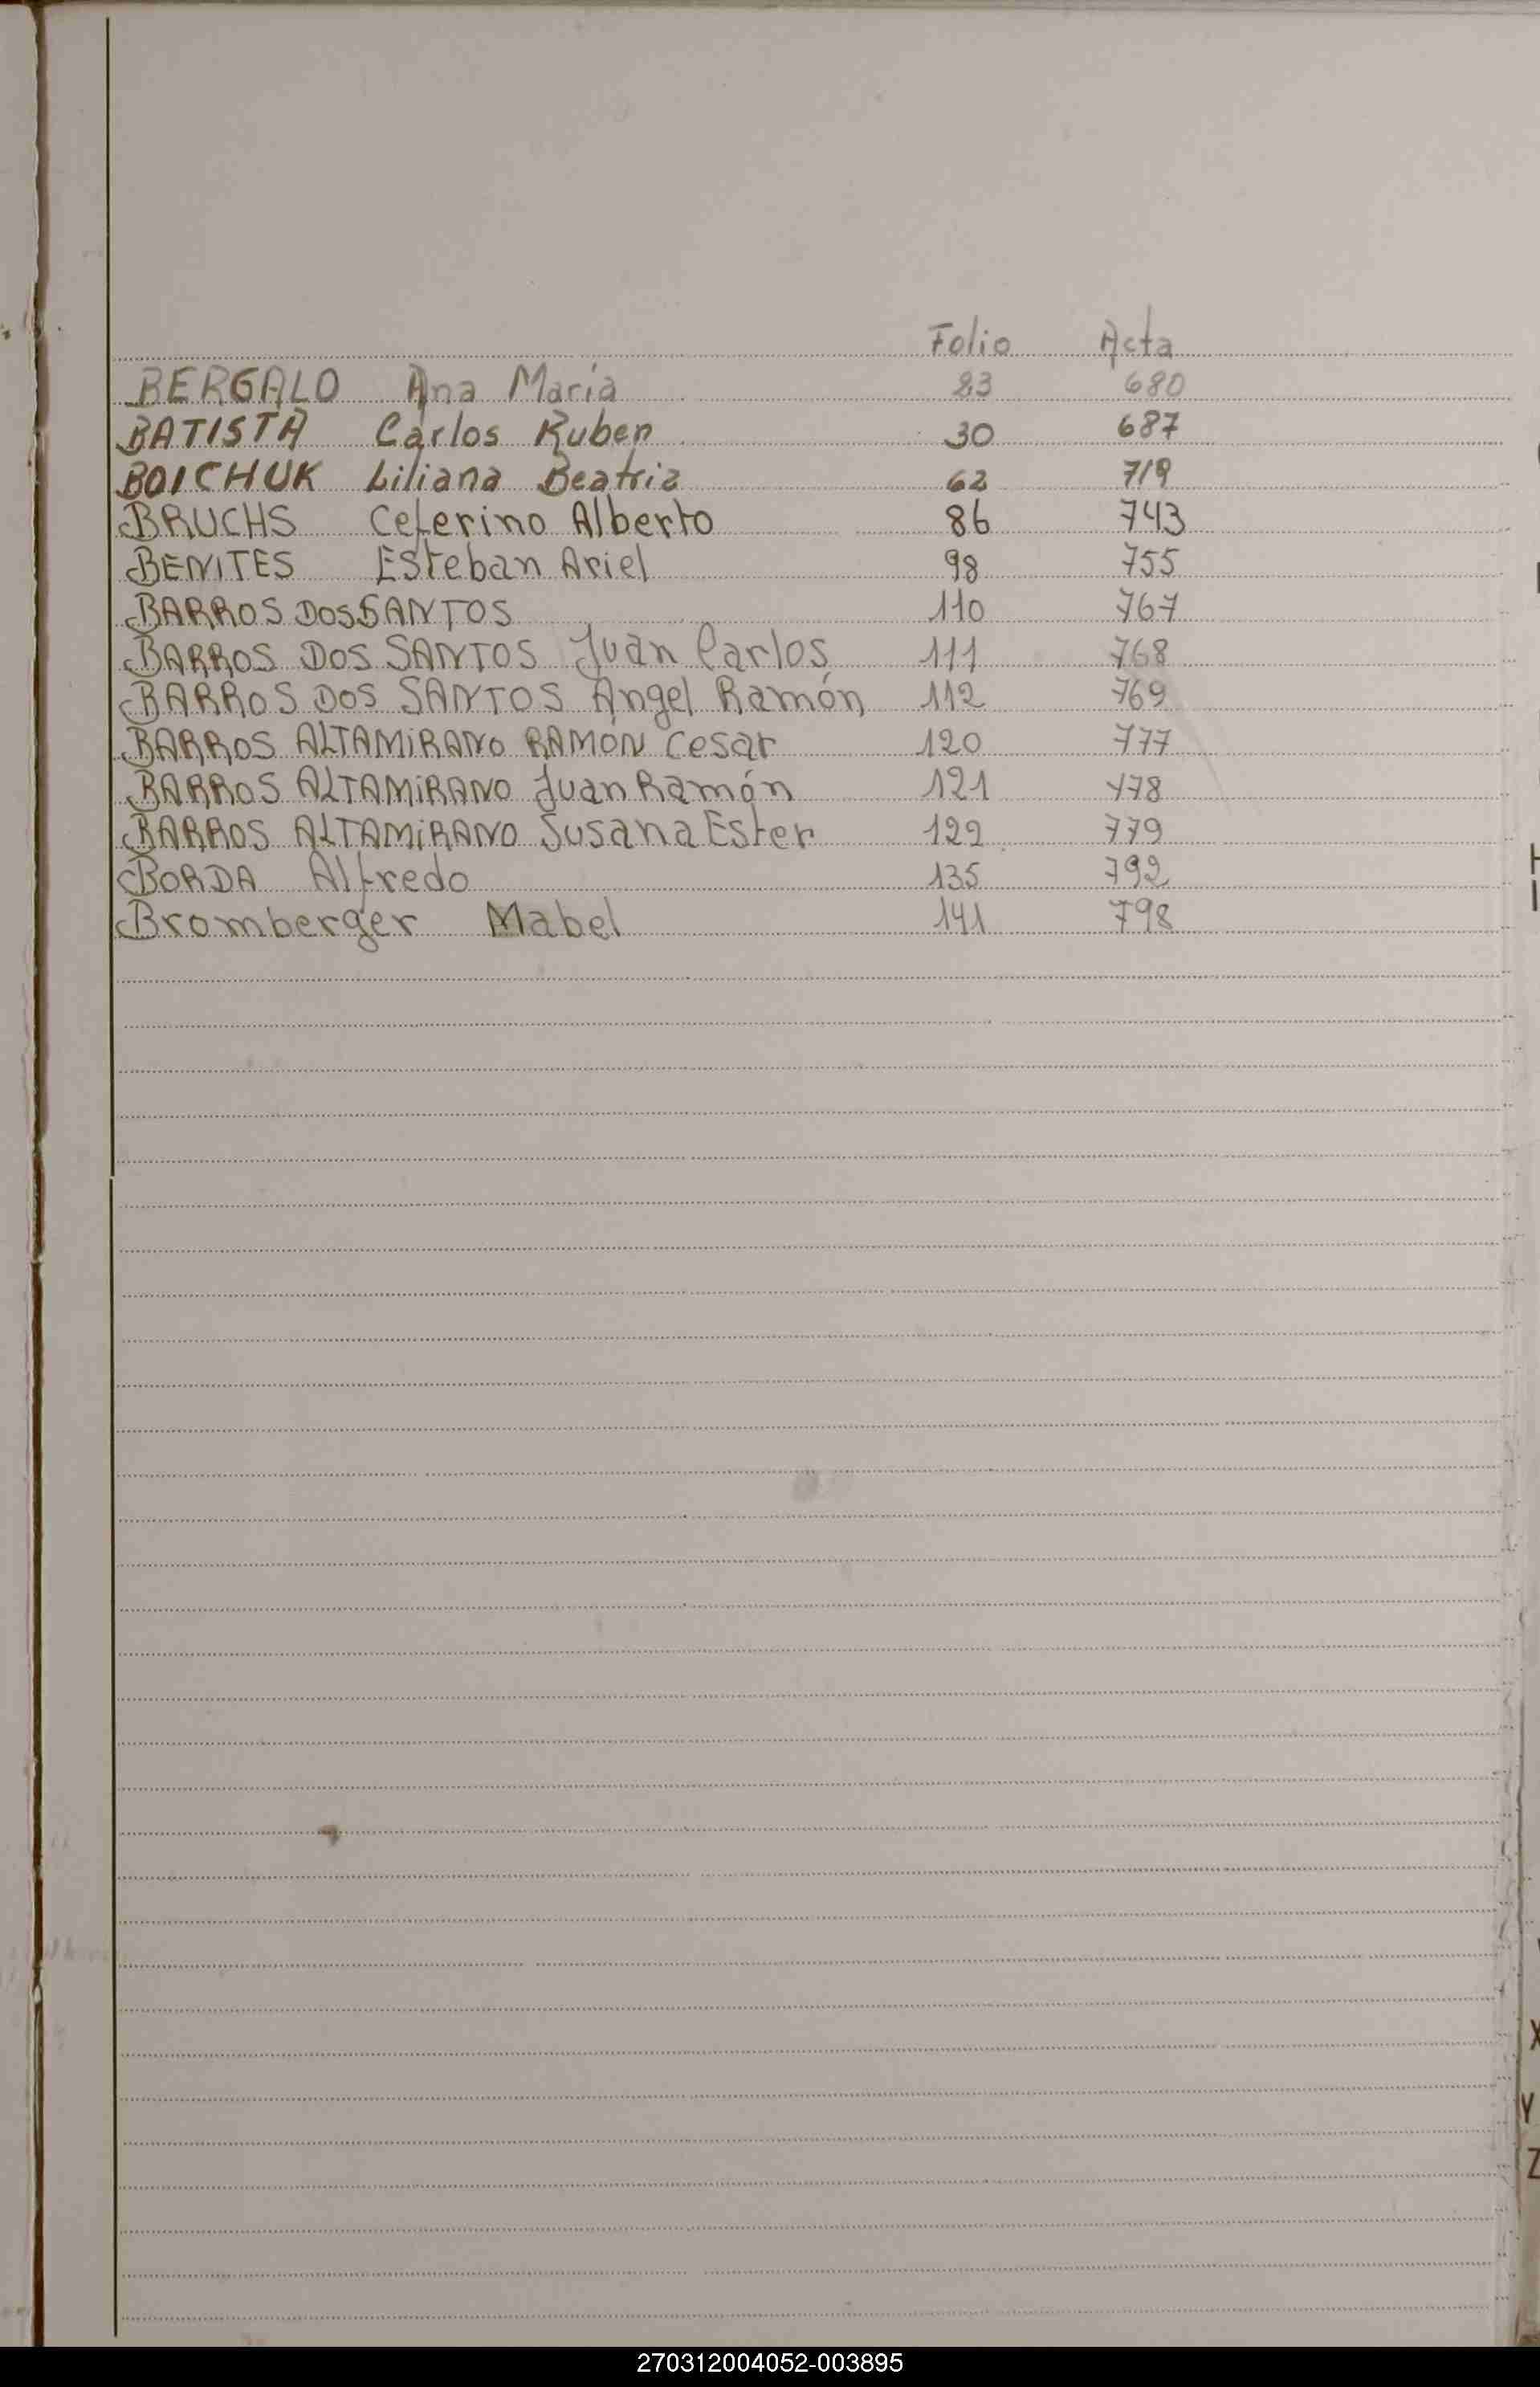 Folio Acta
BERGALO Ana María 23 680
BATISTA Carlos Ruben 30 687
BOICHUK Liliana Beatriz 62 719
BRUCHS Ceferino Alberto 86 743
BENITES Esteban Ariel 98 755
BARROS DOS SANTOS 110 767
BARROS DOS SANTOS Juan Carlos 111 768
BARROS DOS SANTOS Angel Ramón 112 769
BARROS ALTAMiRANO RAMÓN Cesar 120 777
BARROS ALTAMiRANO Juan Ramón 121 778
BARROS ALTAMiRANO Susana Ester 122 779
BORDA Alfredo 135 792
Bromberger Mabel 141 798
X
Y
Z
270312004052-003895